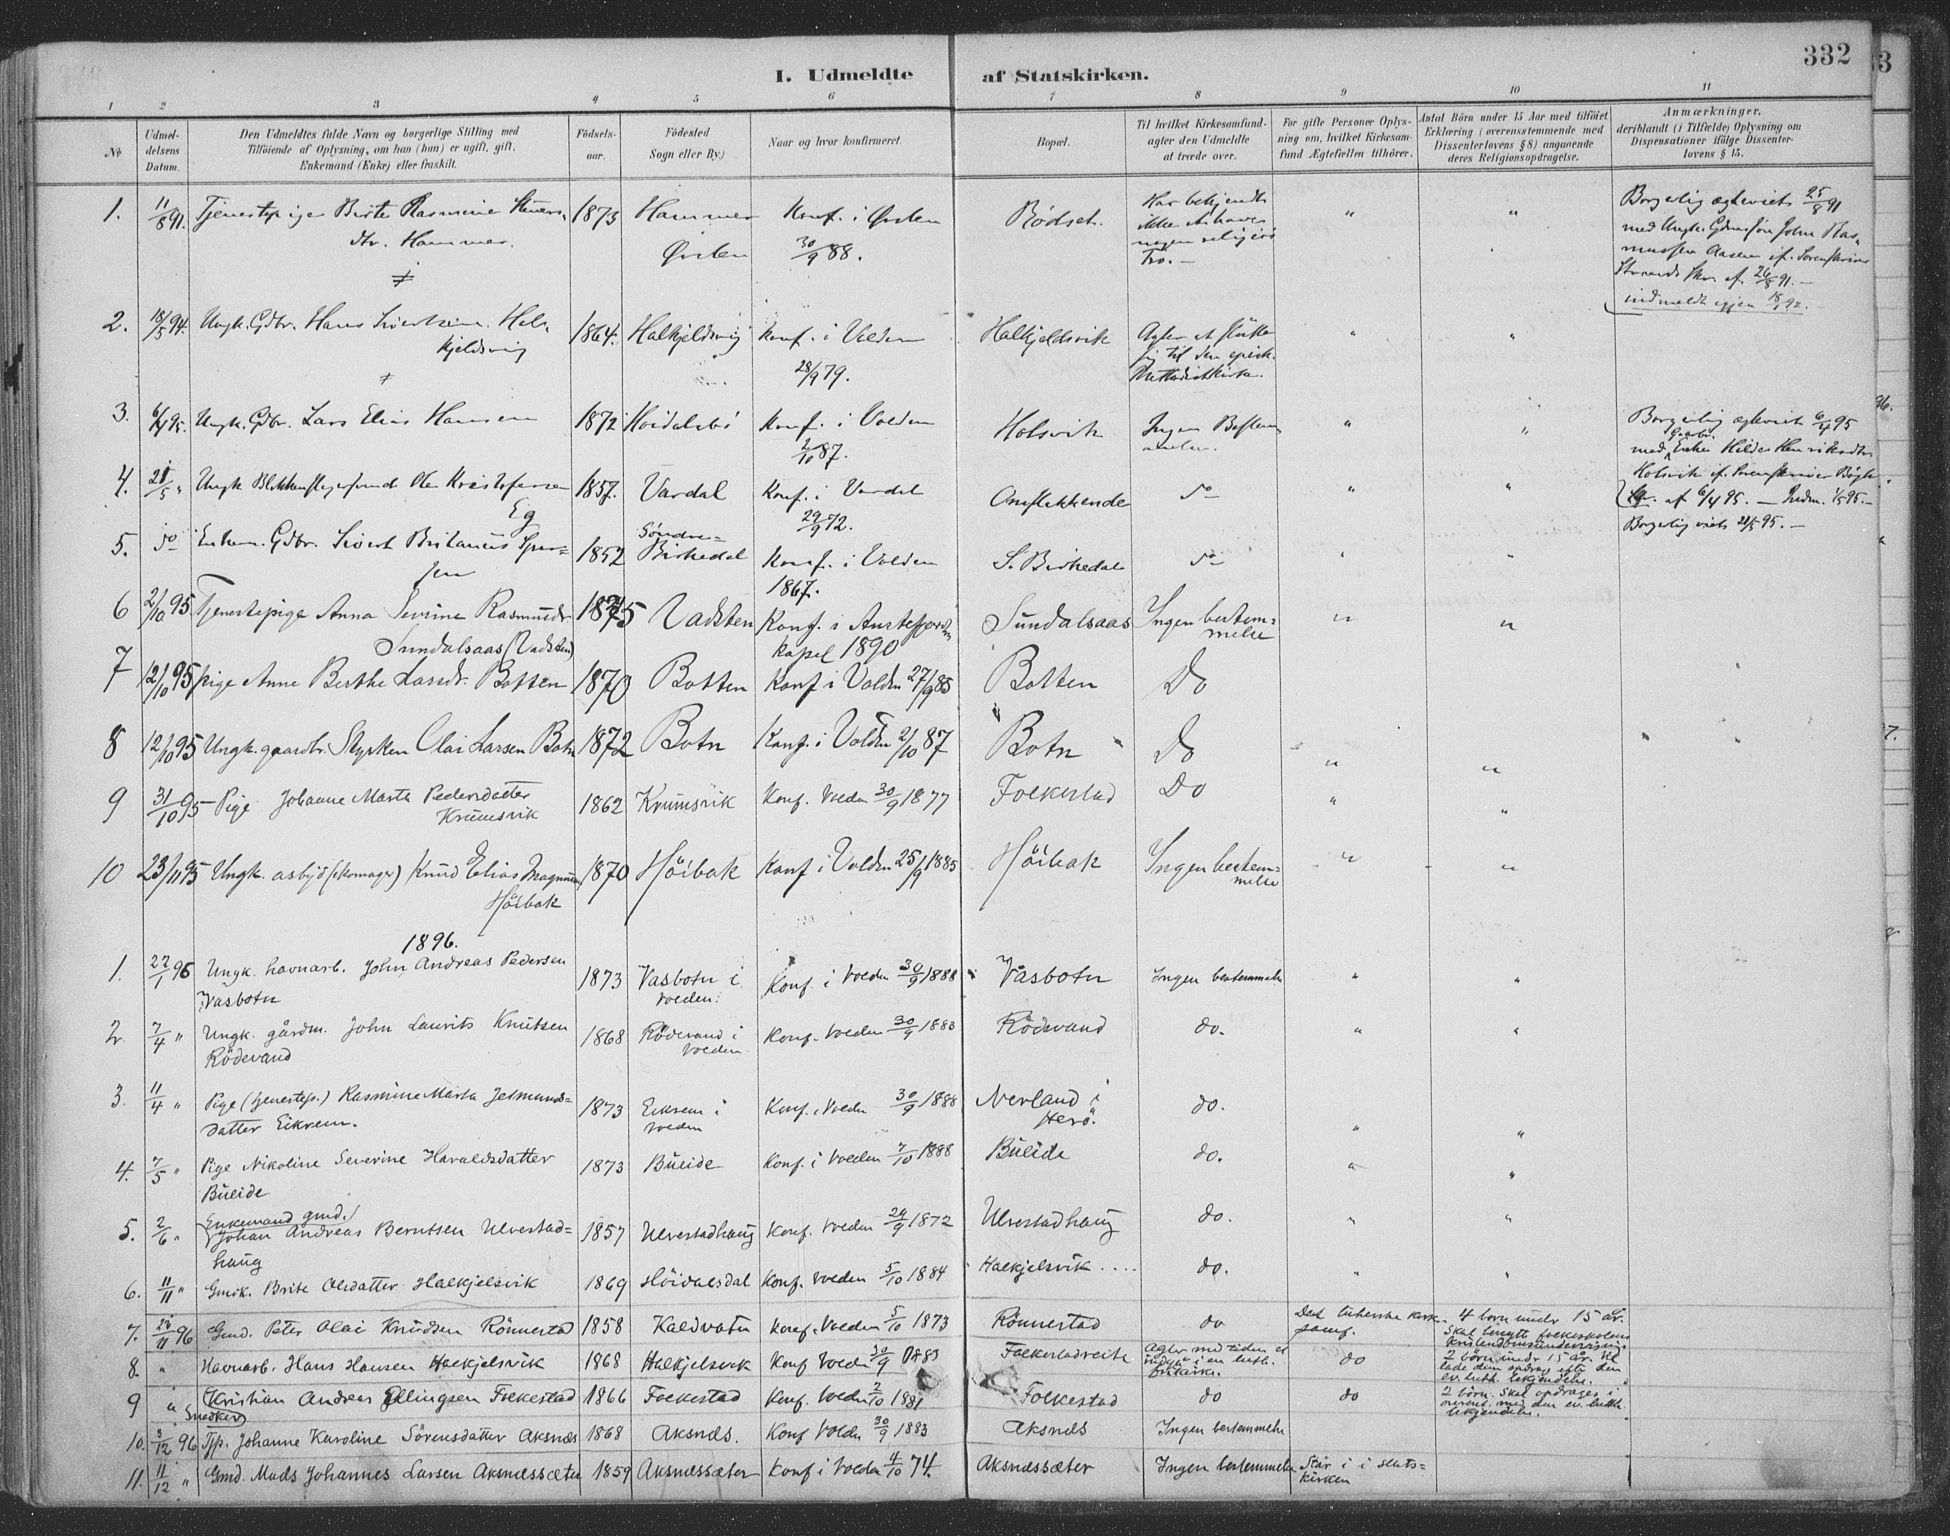 332
I. Udmeldte af Statskirken.
1 2 3 4 5 6 7 8 9 10 11
No
Udmeldelsens Datum.
Den Udmeldtes fulde Navn og borgerlige Stilling med
Tilføiende af Oplysning, om han (hun) er ugift, gift,
Enkemand (Enke) eller fraskilt.
Fødselsaar.
Fødested
Sogn eller By)
Naar og hvor konfirmeret.
Bopæl.
Til hvilket Kirkesamfund
agter den Udmeldte
at træde over.
For gifte Personer Oplysning
om, hvilket Kirkesamfund
Ægtefællen tilhører.
Antal Børn under 15 Aar med tilføiet
Erklæring (overensstemmende med
Dissenterlovens § 8) angaaende
deres Religionsopdragelse.
Anmærkninger,
deriblandt (i Tilfælde) Oplysning om
Dispensationer ifølge Dissenterlovens
§ 15.
1. 11/8 91. Tjenestepige Birte Rasmine 1873 Hammer Konf. i Ørsten Rødset. Har bekjendt " " Borgerlig ægteviet 25/8 91
dtr. Hammer. Ørsten 30/9 88. ikke at have med Ungk. John Ras-
nogen religiøs mussen Aasen
Tro. — af 26/8 91. —
indmeldt igjen
2. 18/5 94. Ungk. Gdbr. Hans Sivertsen Hal- 1864. Halkjeldsvig Konf. i Volden Halkjeldsvik Agter at slutte " "
kjeldsvig 28/9 79. sig til den episk.
Methodistkirke.
3. 6/4 95. Ungk. Gdbr. Lars Elias Hansen 1872 Høidalsbø Konf. i Volden Holsvik Ingen Bestem- " " Borgerlig ægteviet 6/4 95
2/10 87. melse. med Enke
Holsvik
4. 21/5 " Ungk Ole Kristofersen 1857. Vardal Konf. i Vardal Omflakkende do " " af 6/4 95. —
Eg 29/9 72. Borgerlig viet 21/5 95. —
5. do Enkem. Gdbr. Sivert Britanius 1852 Søndre- Konf. i Volden S. Birkedal do " "
sen Birkedal 1867.
6 2/10 95 Tjenestepige Anna Severine Rasmusdr. 1875 Vadsten Konf. i Austefjorden Sundalsaas Ingen bestem- " "
Sundalsaas (Vadsten) kapel 1890 melse
7 12/10 95 pige Anne Berthe Larsdr. Botten 1870 Botten Konf i Volden 27/9 85 Botten Do
8 12/10 95 Ungk. gaardbr. Styrken Olai Larsen Botn 1872 Botn Konf. i Volden 2/10 87 Botn Do " "
9 31/10 95 Pige Johanne Marta Pedersdatter 1862 Krumsvik Konf. Volden 30/9 1877 Folkestad Do " "
Krumsvik
10 23/11 95 Ungk. (skomager) Knud Elias Magnusen 1870 Høibak Konf i Volden 25/9 1885 Høibak Ingen bestem- " "
Høibak melse
1896.
1. 22/1 96 Ungk. havnarb. John Andreas Pedersen 1873 Vasbotn i Konf. i Volden 30/9 1888 Vasbotn Ingen bestemmelse " "
Vasbotn Volden.
2. 7/4 " Ungk. gårdm. John Laurits Knutsen 1868 Rödevand i Konf. Volden 30/9 1883 Rödevand do. " "
Rödevand Volden
3. 11/4 " Pige (tjenestep.) Rasmine Marta Jetmunds= 1873 Eikrem i Konf. i Volden 30/9 1888 Nerland i do. " "
datter Eikrem. Volden Herö.
4. 7/5 " Pige Nikoline Severine Haraldsdatter 1873 Bueide Konf. i Volden 7/10 1888 Bueide do. " "
Bueide
5. 2/6 " Enkemand gmd.
Johan Andreas Berntsen Ulvestad= 1857 Ulvestadhaug Konf. Volden 29/9 1872 Ulvestadhaug do. " "
haug
6. 11/11 " Gmdk. Brite Olsdatter Halkjelsvik 1869 Höidalsdal Konf. Volden 5/10 1884 Halkjelsvik .... do. " "
7. 26/11 96 Gmd. Peter Olai Knudsen Rönnestad 1858 Kaldvatn Konf. Volden 5/10 1873 Rönnestad do Det lutherske kirk- 4 born under 15 år.
samf. Skal benytte folkeskolens
kristendomsundervisning.
8. " Havnarb. Hans Hansen Halkjelsvik 1868 Halkjelsvik Konf Volden 30/9 1883 Folkestadreite Agter med tiden at do 2 börn under 15 år. Vil
indgå i en luth. lade dem opdrage efter den
frikirke. ev. luth. bekjendelse.
9 " Kristian Andreas Ellingsen Folkestad 1866 Folkestad Konf. Volden 2/10 1881 Folkestad do do 2 börn. Skal opdrages i
Snedker overenst. med den ev. luth.
bekjendelse.
10. 3/12 96 Tjp. Johanne Karoline Sörensdatter Aksnes 1868 Aksnes. Konf Volden 30/9 1883 Aksnes Ingen bestemmelse
11. 11/12 " Gmd. Mads Johannes Larsen Aksnessæter 1859 Aksnessæter Konf i Volden 4/10 74. Aksnessæter Ingen bestemmelse Står i i stats=
kirken